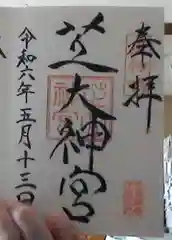 奉拝
芝大神宮
令和六年五月十三日